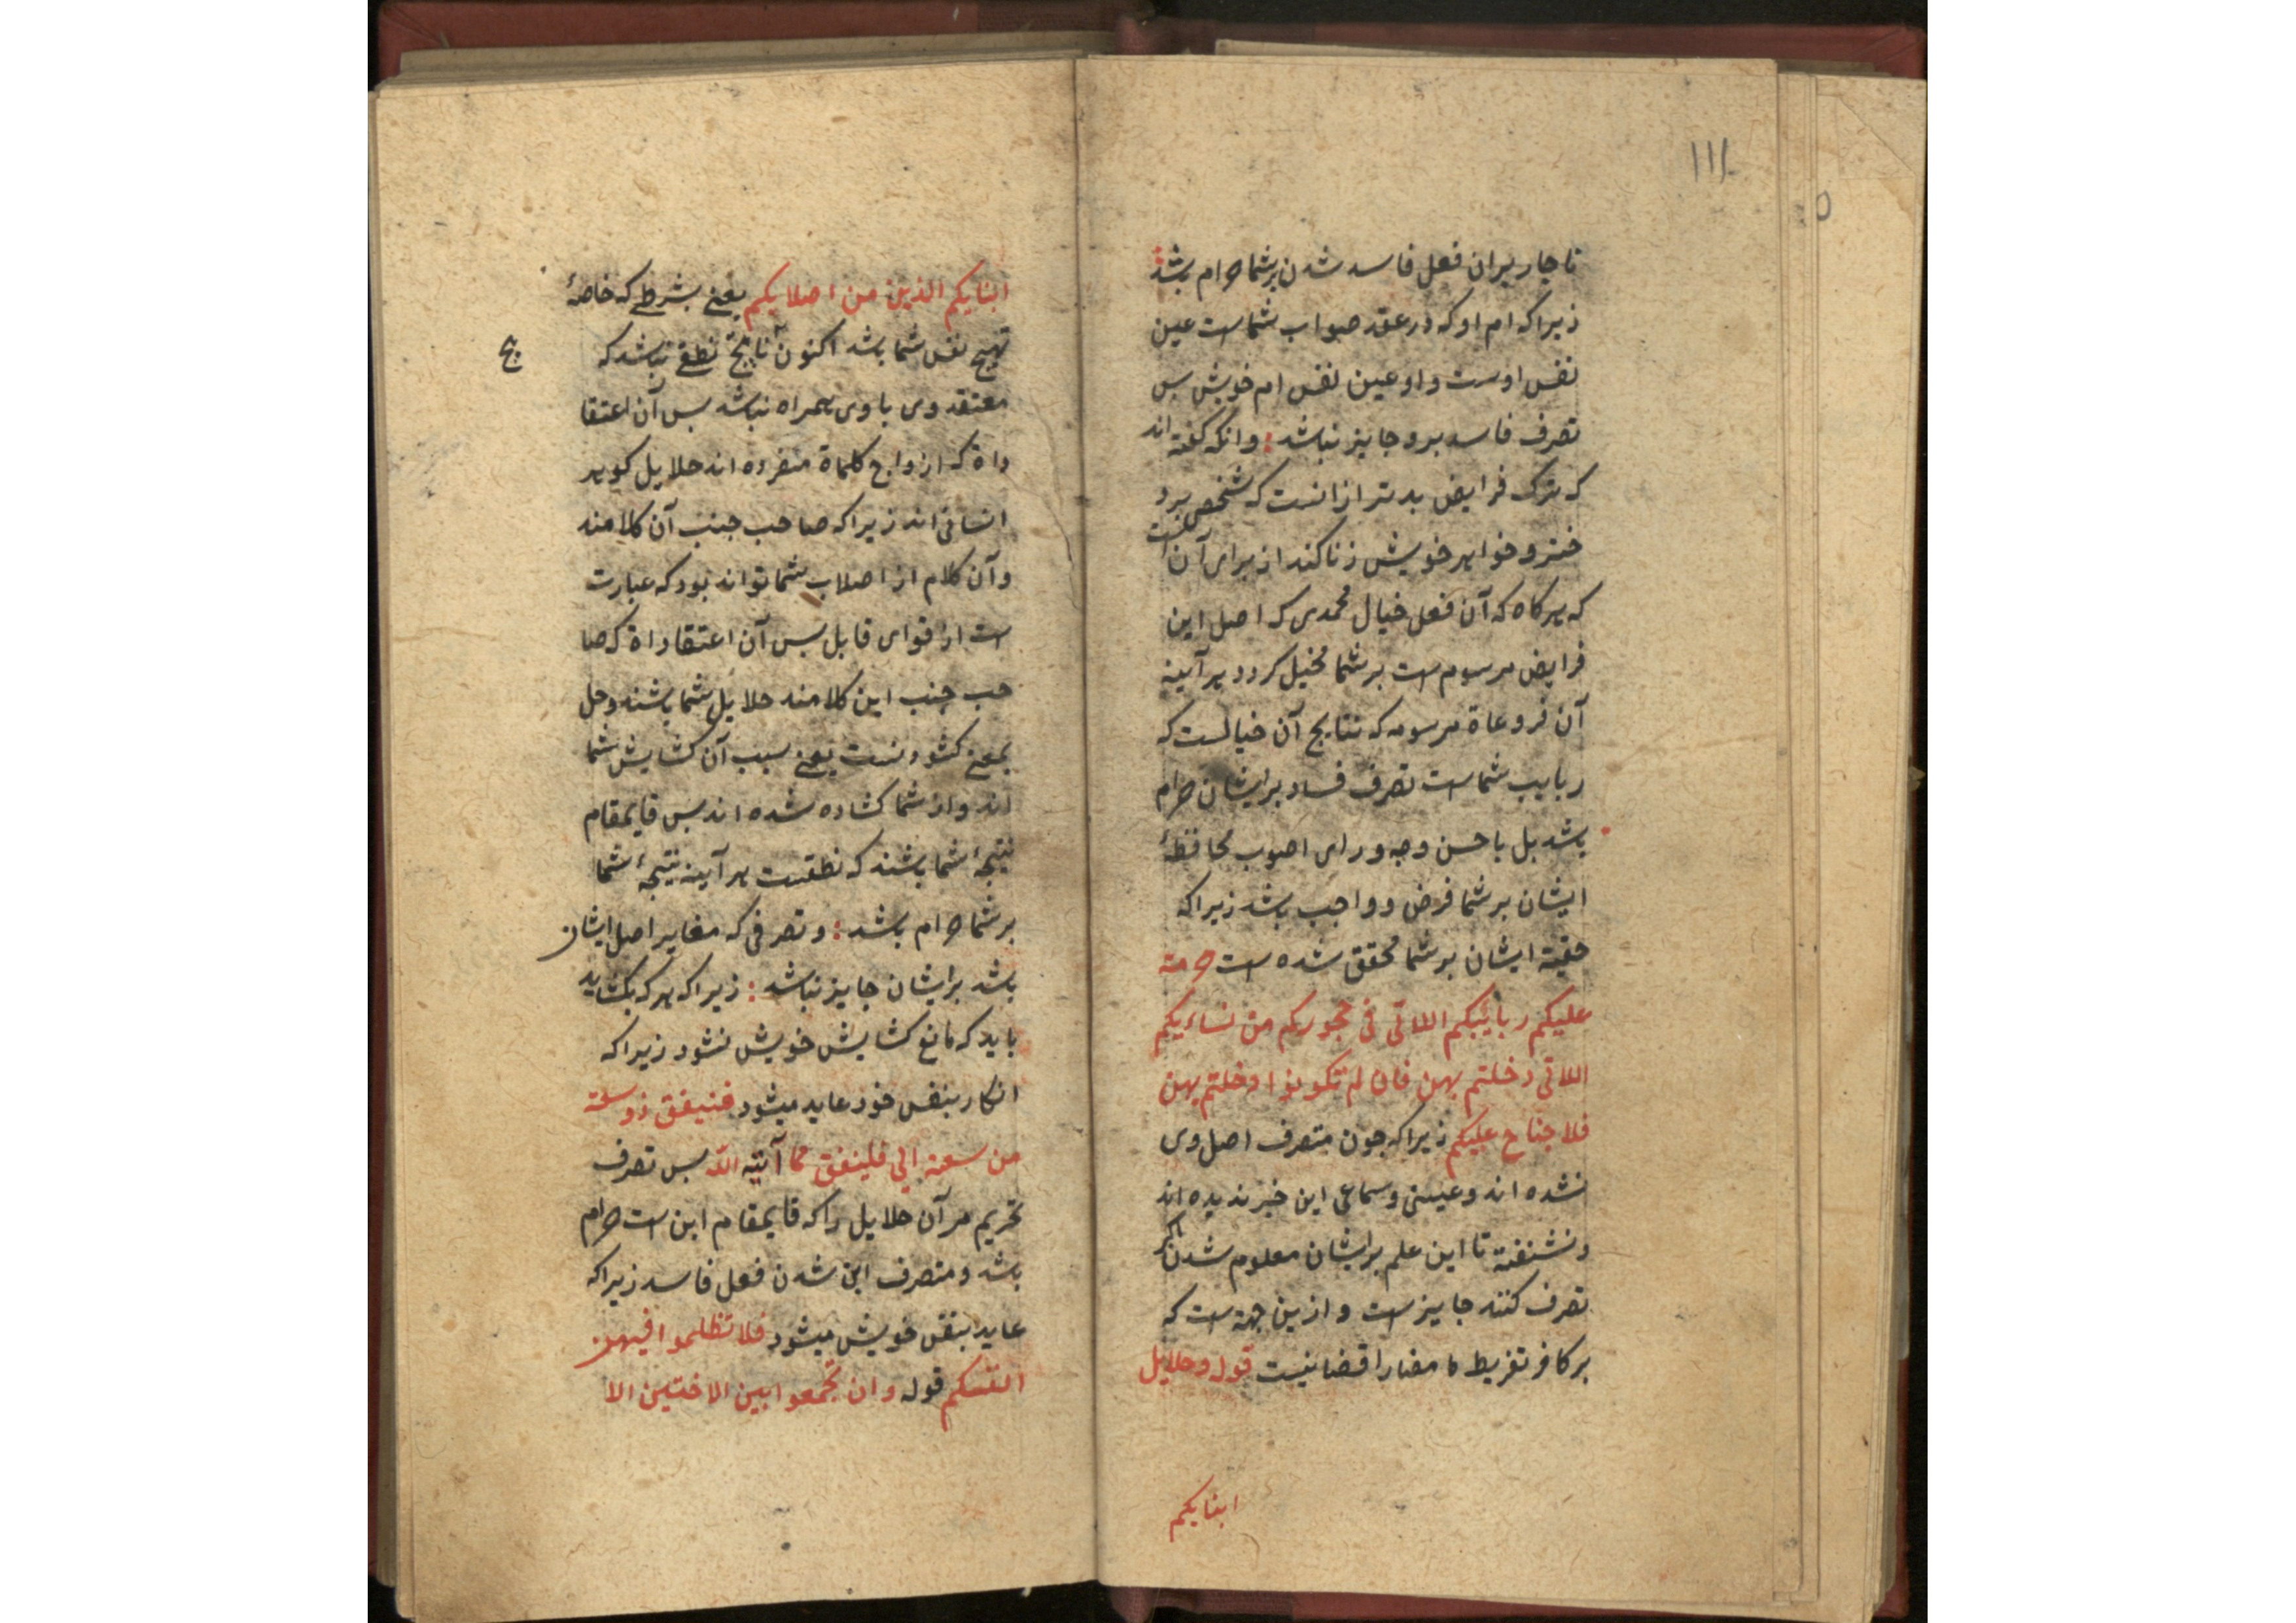 ١١٨
ناچار بران فعل فاسد شدن بر شما حرام باشد
زیراکه ام او که در عقد صواب شماست عین
نفس اوست و او عین نفس ام خویش بس
تصرف فاسد برو جایز نباشد : و انکه کفته اند
که ترک فرایض بدتر ازانست که شخصی برد
ختر و خواهر خویش زنا کند از برای آن است
که هرکاه که آن فعل خیال محمدی که اصل این
فرایض مرسوم است بر شما مخیل کردد هر آینه
آن فروعاة مرسومه که نتایج آن خیالست که
ربایب شماست تصرف فساد برایشان حرام
باشد بل باحسن وجه و رای اصوب محافظهٔ
ایشان بر شما فرض و واجب باشد زیراکه
حقیة ایشان بر شما محقق شده است حرمة
علیکم ربائبکم اللاتی فی حجورکم من نساءیکم
اللاتی دخلتم بهن فان لم تکونوا دخلتم بهن
فلا جناح علیکم زیراکه جون متصرف اصل وی
نشده اند و عینی و سماعی این خبر ندیده اند
و نشنفته تا این علم برایشان معلوم شدن اکر
تصرف کنند جایز است و ازین جهة است که
بر کافر تفریط ما مضا را قضا نیست قوله وحلایل
ابنایکم
ابنایکم الذین من اصلابکم یعنی بشرطی که خاصهٔ
تهیج نفس شما باشد اکنون آن نتایج نطقی نباشد که
معتقد وی با وی همراه نباشد بس آن اعتقا
داة که ازواج کلماة منفرده اند حلایل کوهر
انسانی اند زیراکه صاحب جنب آن کلامند
و آن کلام از اصلاب شما تواند بود که عبارت
است از قوای قابل بس آن اعتقاداة که صا
حب جنب این کلامند حلایل شما باشند و حل
بمعنی کشودنست یعنی سبب آن کشایش شما
اند و از شما کشاده شده اند بس قایمقام
نتیجهٔ شما باشند که نطقیست هر آینه نتیجهٔ شما
بر شما حرام باشد : و تصرفی که مغایر اصل ایشان
باشد برایشان جایز نباشد : زیراکه هرکه بکشاید
باید که مانع کشایش خویش نشود زیراکه
انکار بنفس خود عاید میشود فنیفق ذو سعة
من سعته الی فلینفق مما آتیه الله بس تصرف
تحریم مر آن حلایل را که قایمقام ابن است حرام
باشد و متصرف این شدن فعل فاسد زیراکه
عاید بنفس خویش میشود فلا تظلموا فیهن
انفسکم قوله و ان تجمعوا بین الاختین الا